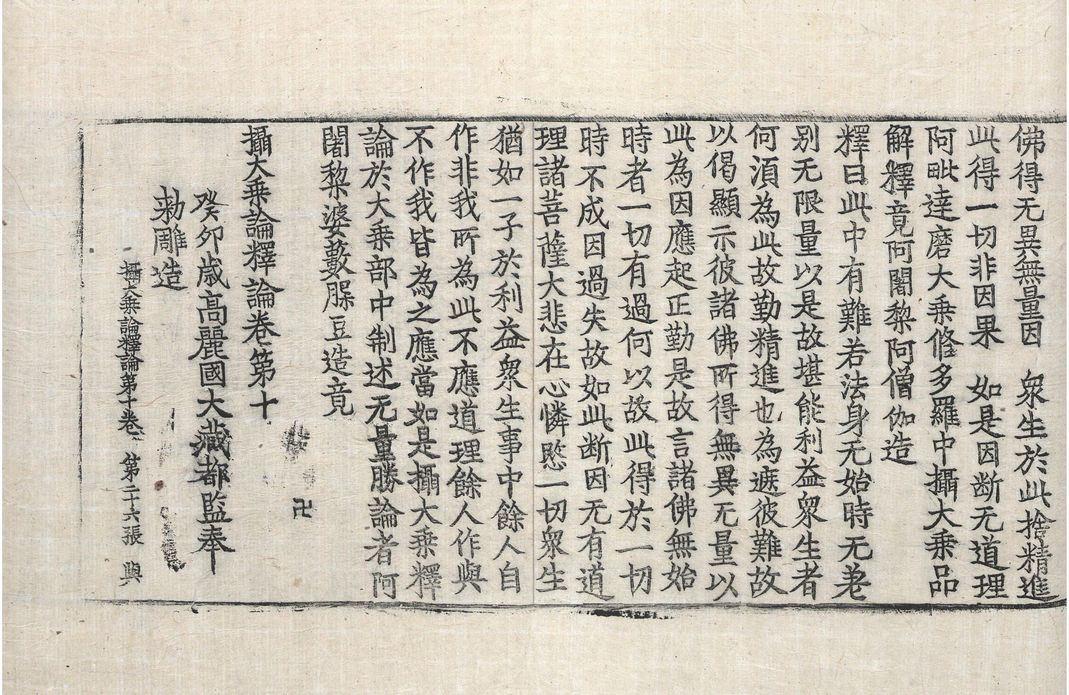 佛得无異無量因　衆生於此捨精進
此得一切非因果　如是因断无道理
阿毗達磨大乘修多羅中攝大乘品
解釋竟阿闍黎阿僧伽造
釋曰此中有難若法身无始時无差
别无限量以是故堪能利益衆生者
何湏為此故勤精進也為遮彼難故
以偈顯示彼諸佛所得無異无量以
此為因應起正勤是故言諸佛無始
時者一切有過何以故此得於一切
時不成因過失故如此断因无有道
理諸菩薩大悲在心憐愍一切衆生
猶如一子於利益衆生事中餘人自
作非我所為此不應道理餘人作與
不作我皆為之應當如是攝大乘釋
論於大乘部中制述无量勝論者阿
闍黎婆藪脲豆造竟
卍
攝大乘論釋論卷第十
癸卯歲高麗國大藏都監奉
勅雕造
攝大乘論釋論第十卷　第二十六張　與